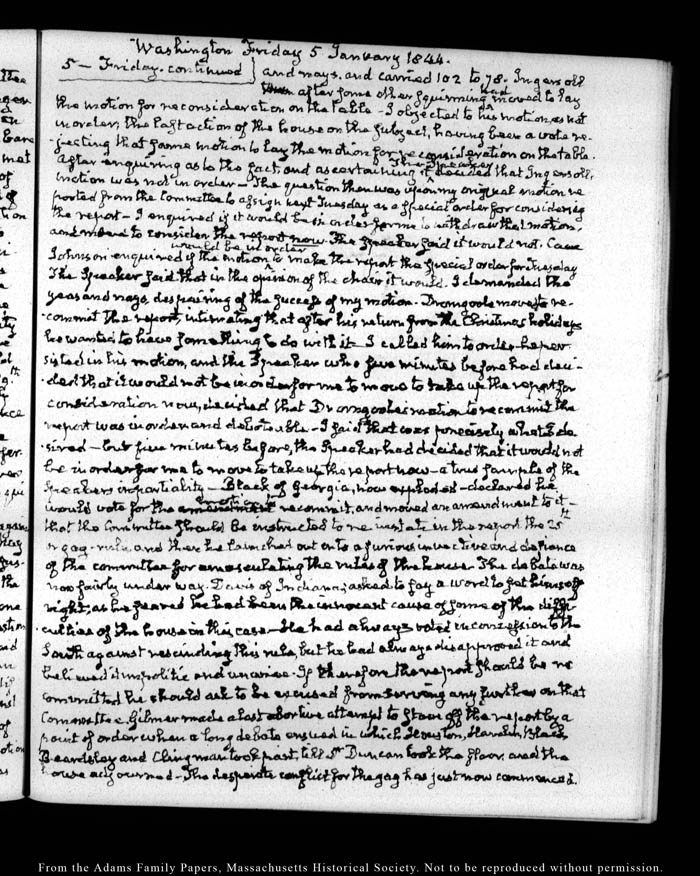 Washington Friday 5 January 1844.
5 — Friday. continued } and nays, and carried 102 to 78. Ingersoll
after some other squirming had moved to lay
the motion for reconsideration on the table — I objected to his motion, as not
in order; the last action of the house on the subject, having been a vote re-
jecting that same motion to lay the motion for reconsideration on the table.
After enquiring as to the fact, and ascertaining it the Speaker decided that Ingersoll's
motion was not in order — The question then was upon my original motion re-
ported from the Committee to assign next Tuesday as a special order for considering
the report — I enquired if it would be in order for me to withdraw that motion,
and move to consider the report now. The Speaker said it would not. Cave
Johnson enquired if the motion to make the report the special order for Tuesday
would be in order
The Speaker said that in the opinion of the chair it would. I demanded the
yeas and nays, despairing of the success of my motion. Dromgoole moved to re-
commit the report, intimating that after his return from the Christmas holidays
he wanted to have something to do with it — I called him to order — he per-
sisted in his motion, and the Speaker who five minutes before had deci-
ded that it would not be in order for me to move to take up the report for
consideration now, decided that Dromgoole's motion to recommit the
report was in order and debatable — I said that was precisely what I de
sired — but five minutes before, the Speaker had decided that it would not
be in order for me to move to take up the report now — a true sample of the
Speaker's impartiality — Black of Georgia, now exploded — declared he
would vote for the amendment motion to recommit, and moved an amendment to it —
that the Committee should be instructed to re-instate in the report the 25th
or gag-rule, and then he launched out into a furious invective and defiance
of the committee for emasculating the rules of the house. The debate was
now fairly under way. Davis of Indiana, asked to say a word to set himself
right; as he feared he had been the innocent cause of some of the diffi-
culties of the house in this case — He had always voted in concession to the
South against rescinding this rule, but he had always disapproved it and
believed it impolitic and unwise. If therefore the report should be re
committed he should ask to be excused from serving any further on that
Committee. Gilmer made a last abortive attempt to stave off the report by a
point of order when a long debate ensued in which Houston, Hamlin, Black
Beardsley and Clingman took part, till Dr Duncan took the floor, and the
house adjourned — The desperate conflict for the gag has just now commenced.
From the Adams Family Papers, Massachusetts Historical Society. Not to be reproduced without permission.